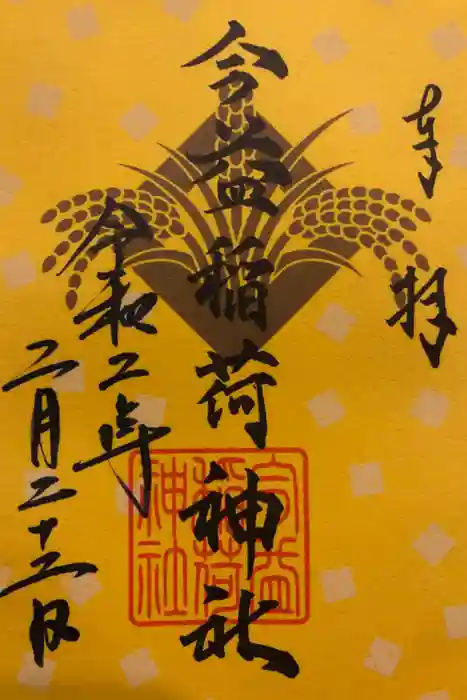 奉拝
益稲荷神社
益
稲荷
神社
令和二年
二月二十三日